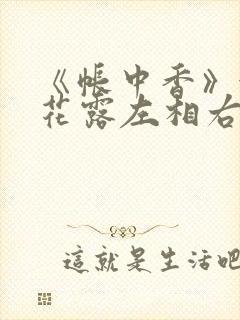 《帐中香》
花露左相右
這就是生活吧